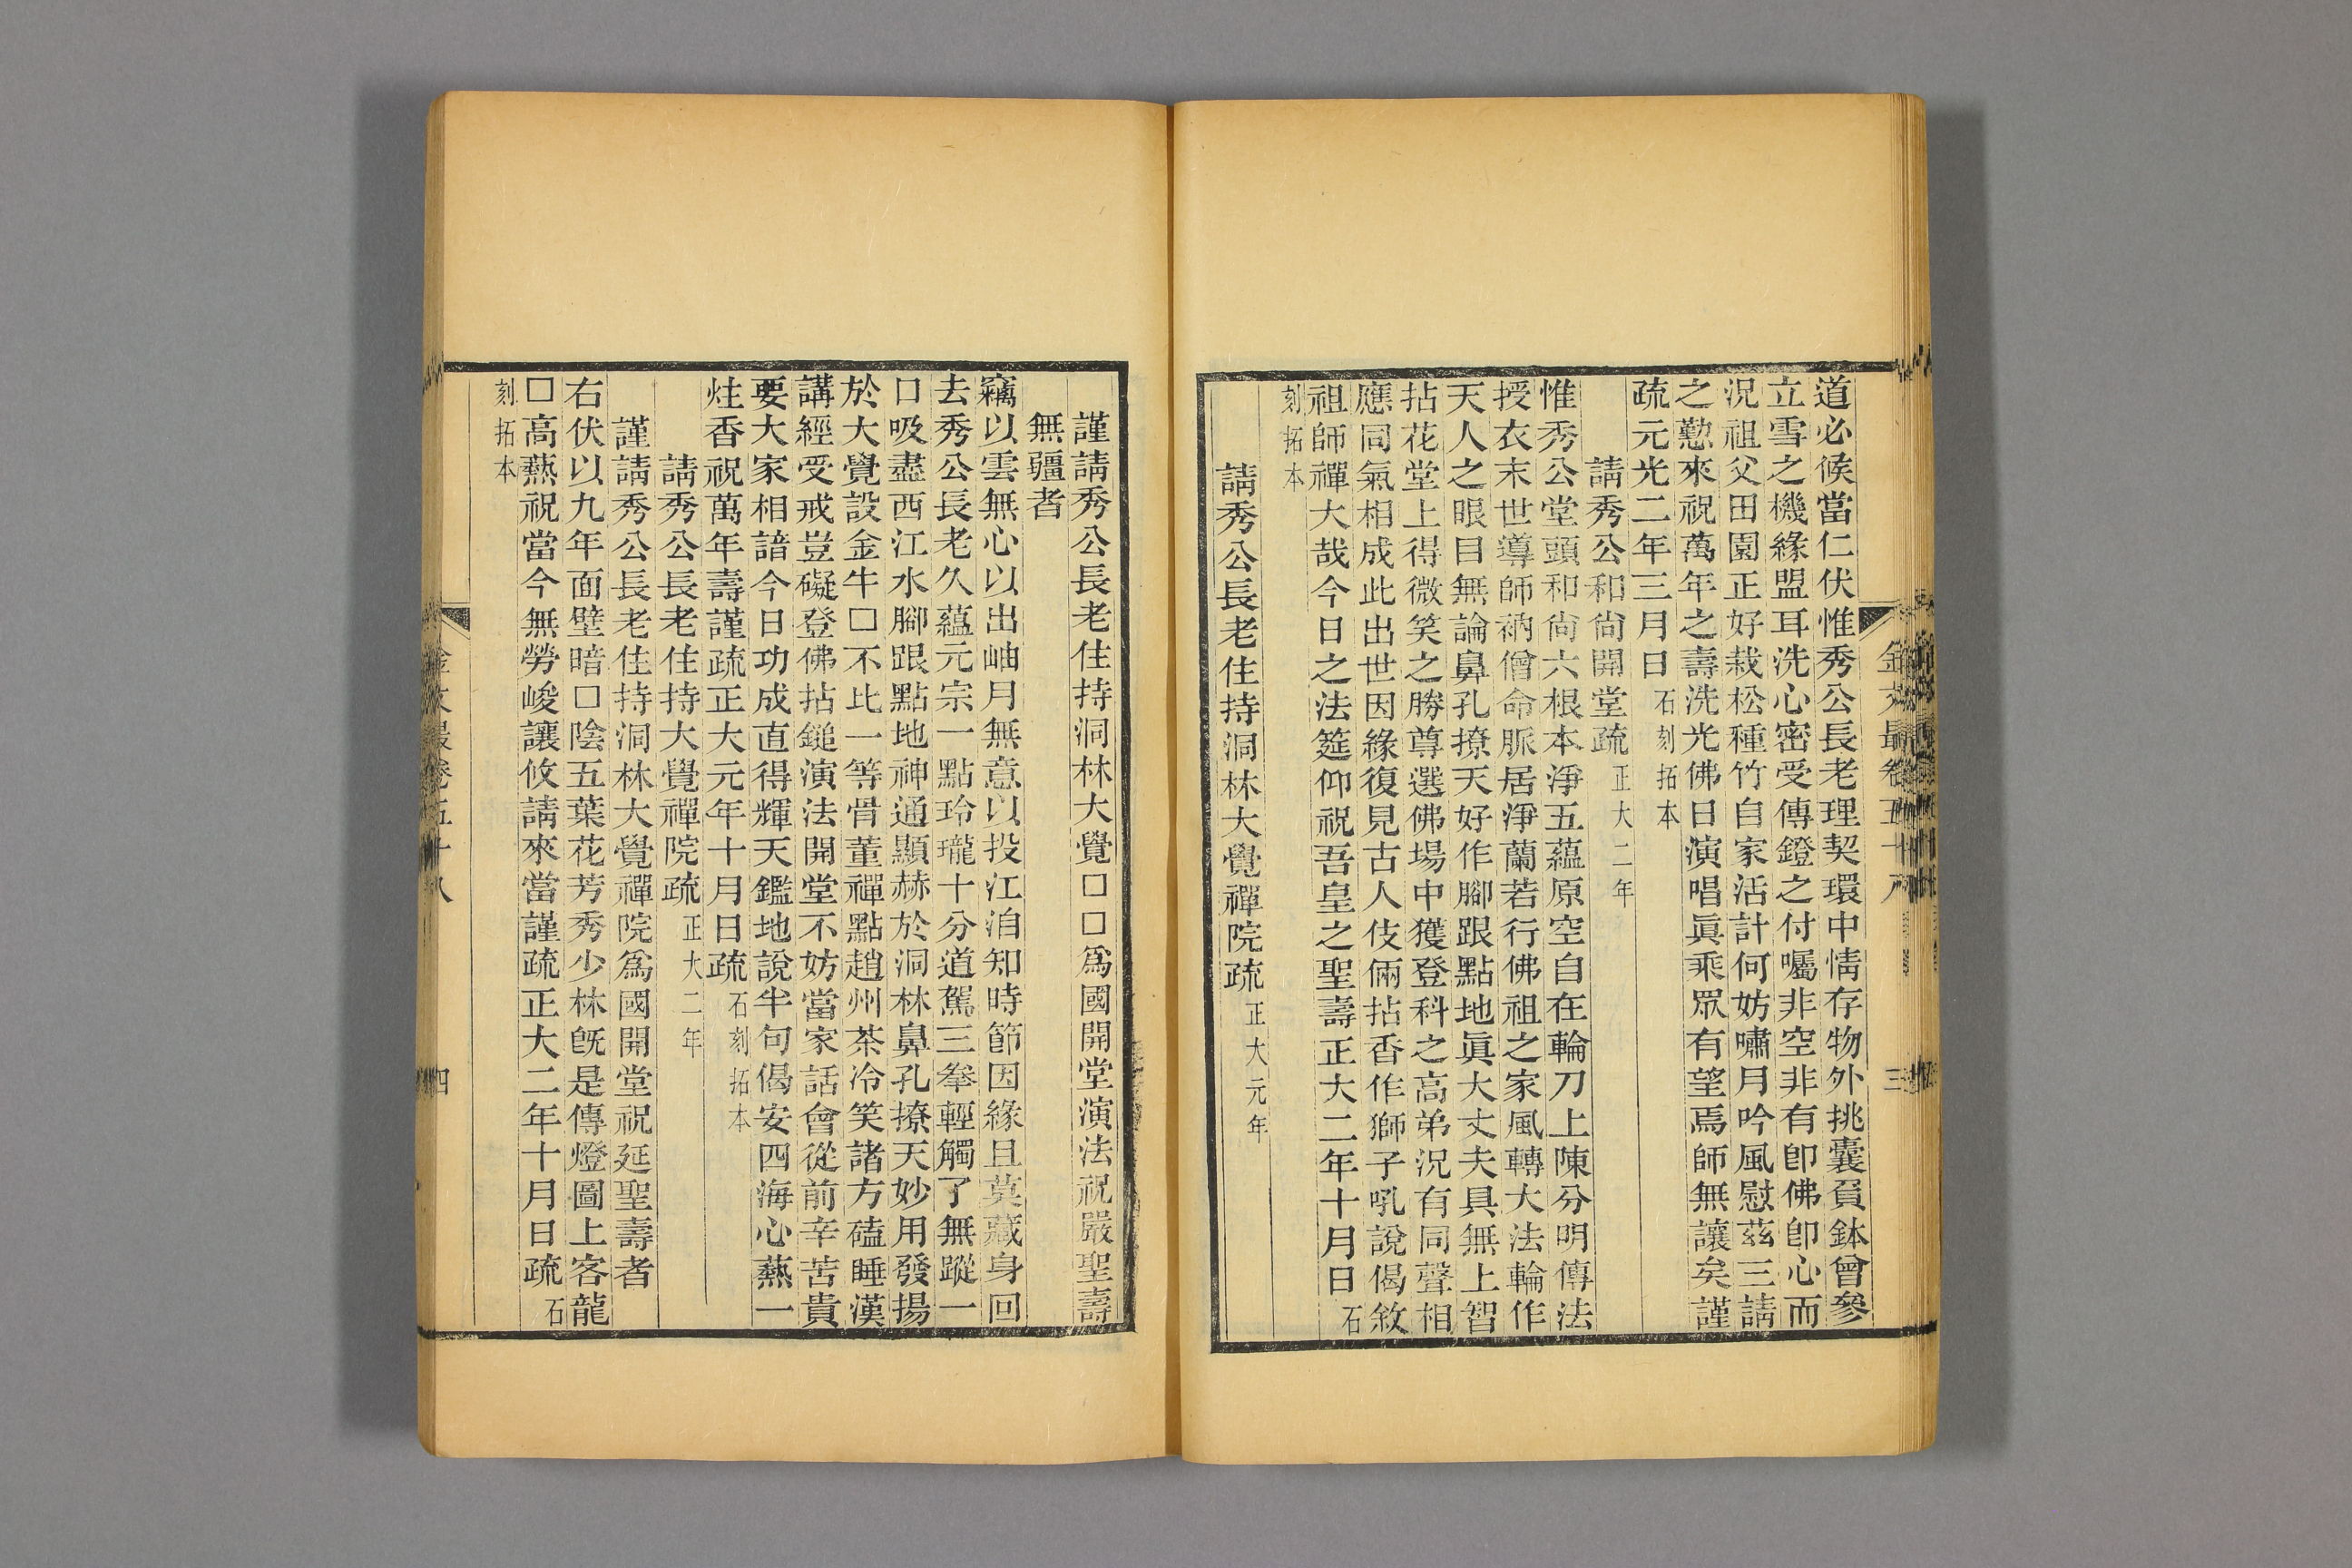 道必候當仁伏惟秀公長老理契環中情存物外挑囊負鉢曾參
立雪之機緣盟耳洗心密受傳鐙之付囑非空非有卽佛卽心而
況祖父田園正好栽松種竹自家活計何妨嘯月吟風慰茲三請
之懃來祝萬年之壽洗光佛日演唱眞乘眾有望焉師無讓矣謹
疏元光二年三月日石刻拓本
請秀公和尙開堂疏正大二年
惟秀公堂頭和尙六根本淨五蘊原空自在輪刀上陳分明傳法
授衣末世導師衲僧命脈居淨蘭若行佛祖之家風轉大法輪作
天人之眼目無論鼻孔撩天好作腳跟點地眞大丈夫具無上智
拈花堂上得微笑之勝尊選佛場中獲登科之高弟況有同聲相
應同氣相成此出世因緣復見古人伎倆拈香作獅子吼說偈敘
祖師禪大哉今日之法筵仰祝吾皇之聖壽正大二年十月日石
刻拓本
請秀公長老住持洞林大覺禪院疏正大元年
謹請秀公長老住持洞林大覺□□爲國開堂演法祝嚴聖壽
無疆者
竊以雲無心以出岫月無意以投江洎知時節因緣且莫藏身回
去秀公長老久蘊元宗一點玲瓏十分道駕三拳輕觸了無蹤一
口吸盡西江水腳跟點地神通顯赫於洞林鼻孔撩天妙用發揚
於大覺設金牛□不比一等骨董禪點趙州茶冷笑諸方磕睡漢
講經受戒豈礙登佛拈鎚演法開堂不妨當家話會從前辛苦貴
要大家相諳今日功成直得輝天鑑地說半句偈安四海心爇一
炷香祝萬年壽謹疏正大元年十月日疏石刻拓本
請秀公長老住持大覺禪院疏正大二年
謹請秀公長老住持洞林大覺禪院爲國開堂祝延聖壽者
右伏以九年面壁暗□陰五葉花芳秀少林旣是傳燈圖上客龍
□高爇祝當今無勞峻讓攸請來當謹疏正大二年十月日疏石
刻拓本
金文最卷五十八
三
金文最卷五十八
四